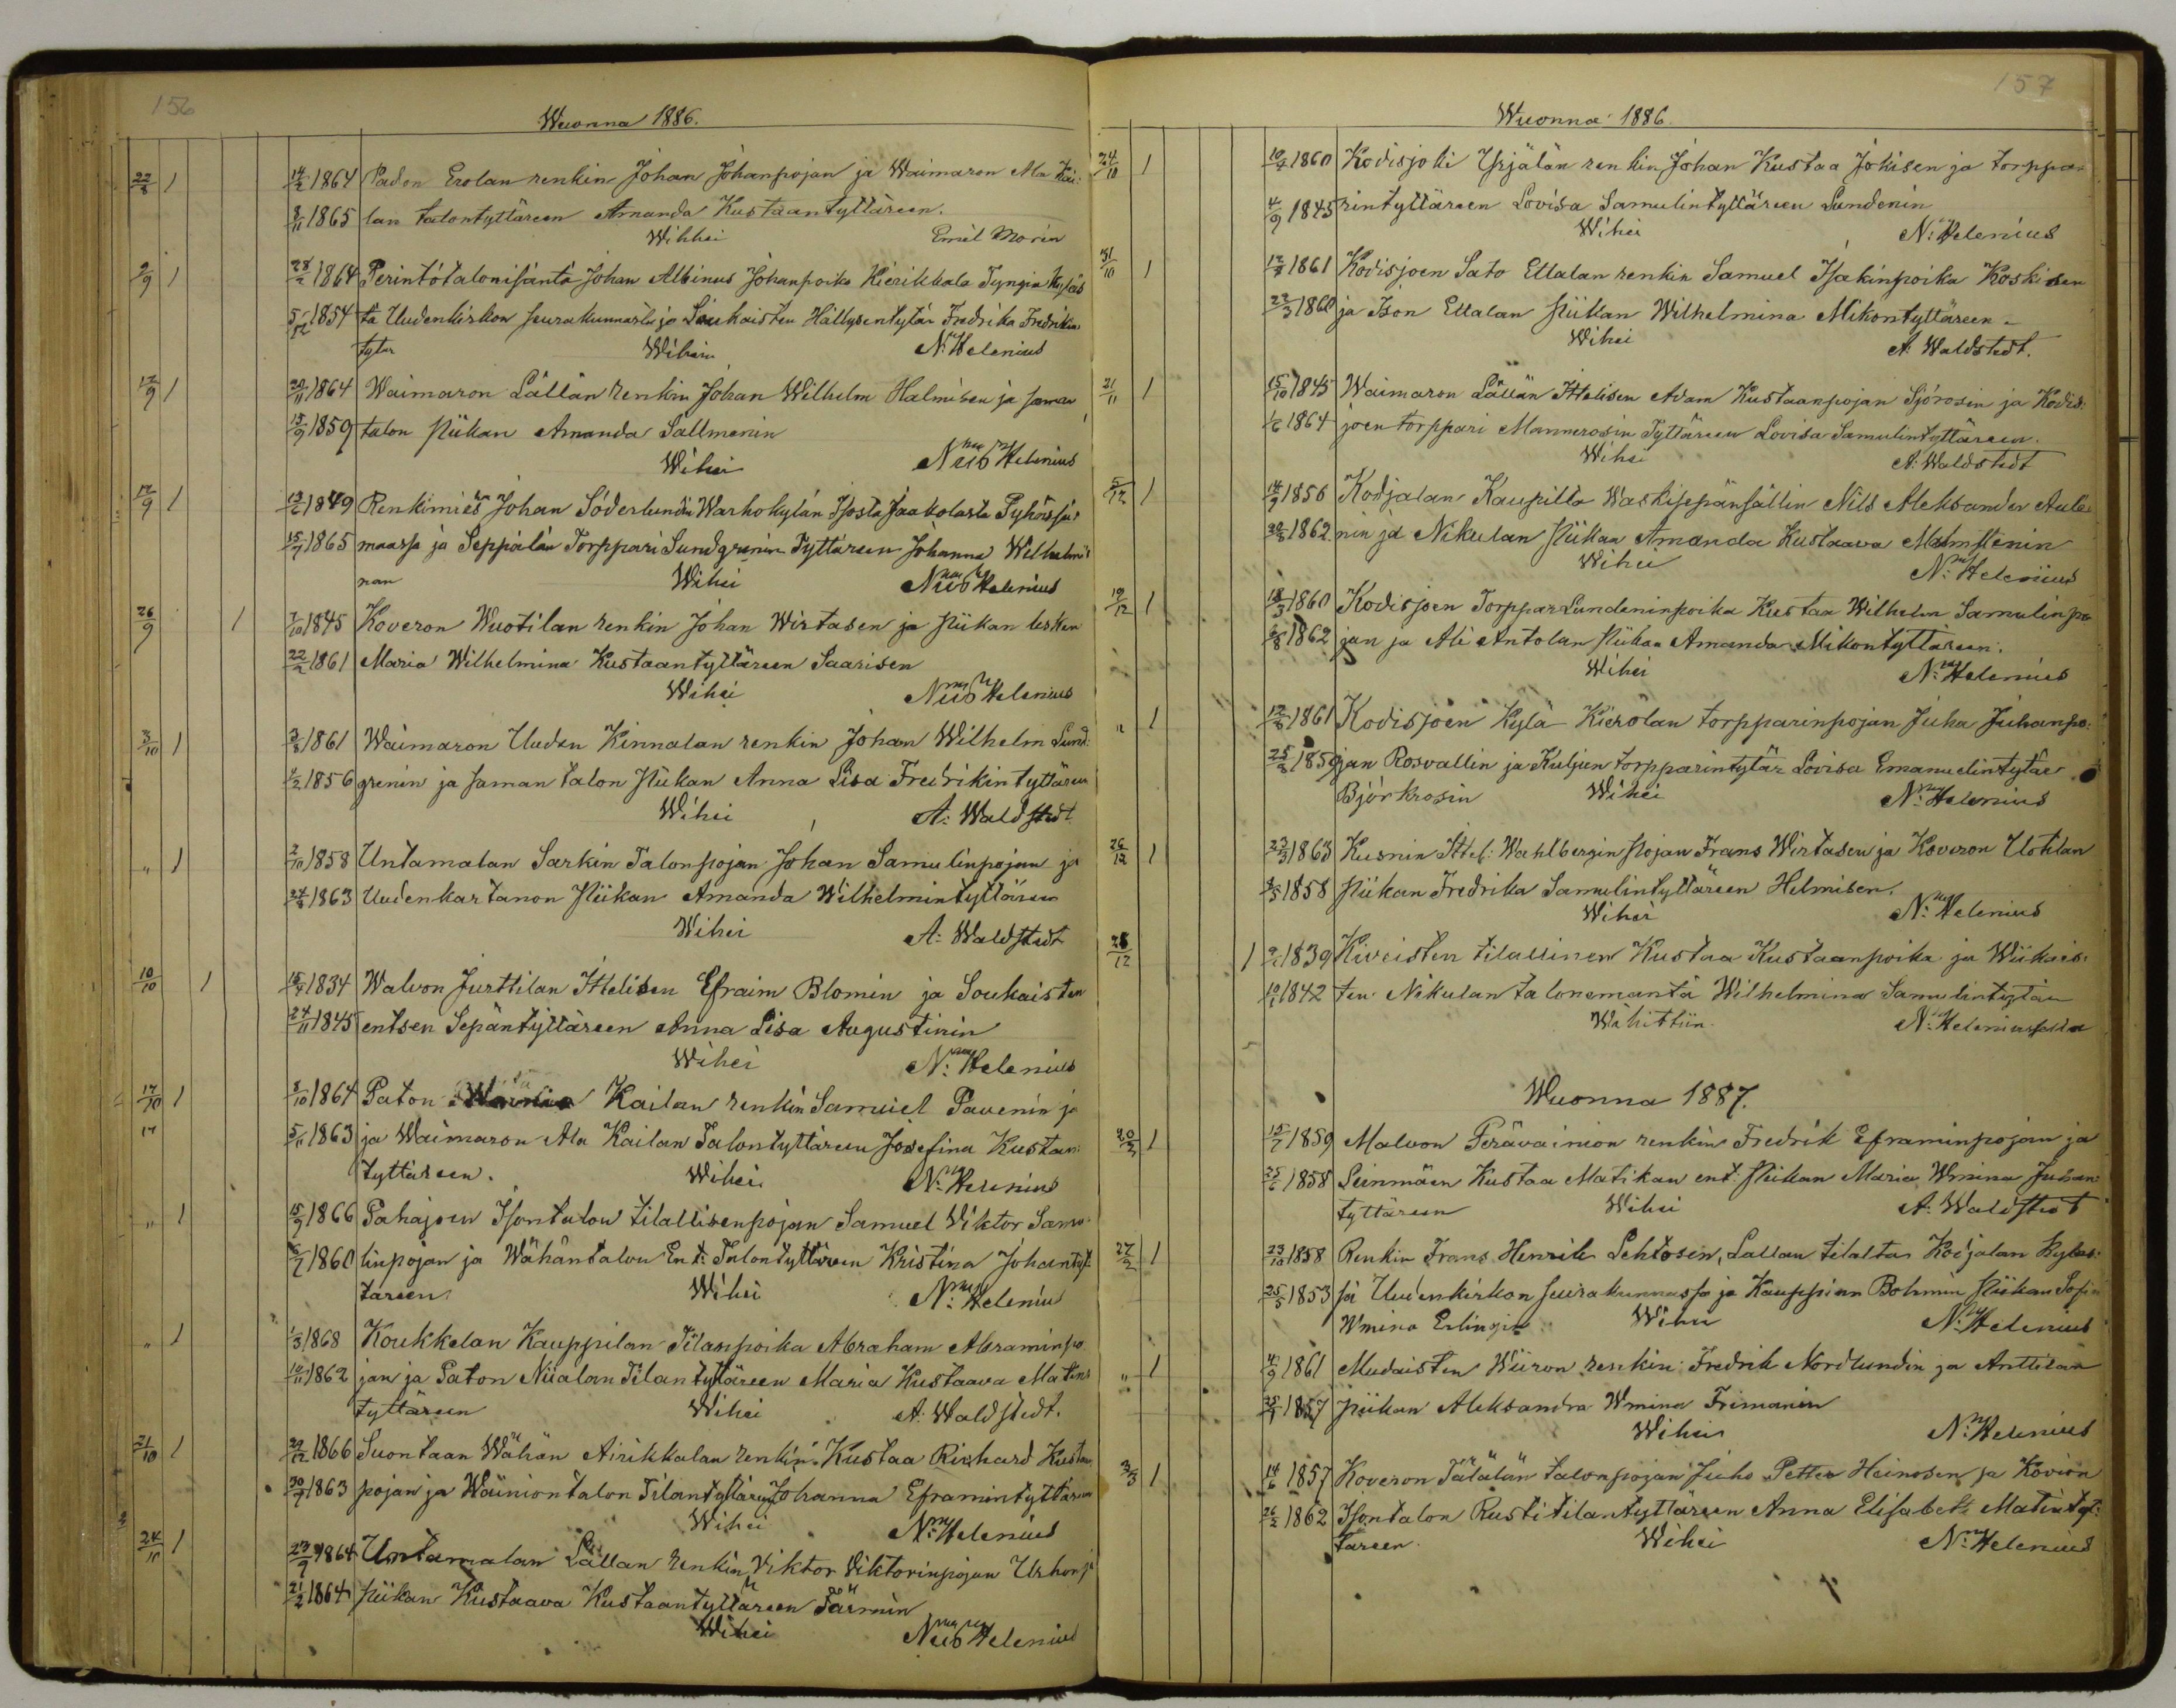 156
Wuonna 1886.
22/8 1 14/2 1864 Padon Erolan renkin Johan Johanpojan ja Waimaron Ala Kai-
8/11 1865 lan talontyttäreen Amanda Kustaantyttäreen.
Wihkei Emil Morin
9/9 1 1864 Perintötalonisäntä Johan Albinus Johanpoika Kierikkala Tyngin kyläs
5/12 1854 tä Uudenkirkon seurakunnasta ja Soukaisten Hällysentytär Fredrika Fredrikin
tytär Wihein N: Helenius
12/9 1 1864 Waimaron Lällän renkin Johan Wilhelm Halmisen ja saman
13/9 1859 talon piikan Amanda Sallmenin
Wihei Helenius
12/9 1 1849 Renkimies Johan Söderlundin Warhokylän Isosta Jaakolasta Pyhässä
15/7 1865 maassa ja Seppälän Torppari Sundgrenin Tyttäreen Johanna Wilhelmi-
nan Wihei Helenius
26/9 1 7/10 1845 Koveron Wuotilan renkin Johan Wirtasen ja piikan lesken
22/2 1861 Maria Wilhelmina Kustaantyttäreen Saarisen
Wihei Helenius
3/10 1 1861 Waimaron Uuden Kinnalan renkin Johan Wilhelm Lund-
1856 grenin ja saman talon piikan Anna Lisa Fredrikintyttäreen
Wihei A: Waldstedt
" 1 2/10 1858 Untamalan Sarkin Talonpojan Johan Samulinpojan ja
1863 Uudenkartanon piikan Amanda Wilhelmintyttäreen
Wihei A: Waldstedt
10/10 1 1834 Walvon Jurttilan Ittelisen Efraim Blomin ja Soukaisten
24/11 1845 entsen Sepäntyttäreen Anna Lisa Augustinin
Wihei N: Helenius
17/10 1 8/10 1864 Paton Kailan renkin Samuel Pavenin ja
5/11 1863 ja Waimaron Ala Kailan Talontyttäreen Josefina Kustan-
tyttäreen. Wihei N: Helenius
" 1 15/9 1866 Pahajoen Isontalon tilallisenpojan Samuel Viktor Samu-
1860 linpojan ja Wähäntalon Ent: Talontyttäreen Kristina Johantyt-
täreen Wihei N: Helenius
" 1 1/3 1868 Koukkelan Kauppilan Tilanpoika Abraham Abraminpo-
10/11 1862 jan ja Paton Niialan Tilantyttäreen Maria Kustaava Matin-
tyttäreen Wihei A: Waldstedt.
21/10 1 1866 Suontaan Wähän Airikkalan renkin Kustaa Richard Kustaan
1863 pojan ja Wäiniontalon Tilantyttären Johanna Eframintyttären
Wihei N: Helenius
1 1864 Untamalan Lällan renkin Viktor Viktorinpojan Urhon ja
21/2 1864 piikan Kustaava Kustaantyttäreen Färmin
Wihei Helenius
157
Wuonna 1886.
24/10 1 1860 Kodisjoki Yrjälän renkin Johan Kustaa Jokisen ja torppa-
4/9 1845 rintyttäreen Lovisa Samulintyttäreen Lundenin
Wihei N: Helenius
31/10 1 1861 Kodisjoen Sato Ettalan renkin Samuel Isakinpoika Koskisen
1860 ja Ison Ettalan piikan Wilhelmina Mikontyttäreen
Wihei A: Waldstedt.
21/11 1 15/10 1845 Waimaron Lällän Ittelisen Adam Kustaanpojan Sjörosin ja Kodis-
1/6 1864 joen torppari Mannerosin Tyttäreen Lovisa Samulintyttäreen.
Wihei A: Waldstedt
5/12 1 14/9 1856 Kodjalan Kaupilla Waskisepänsällin Nils Aleksander Aule-
1862 nin ja Nikulan piikan Amanda Kustaava Malmstenin
Wihei N: Helenius
19/12 1 1860 Kodisjoen Torppar Lundeninpoika Kustaa Wilhelm Samulinpo-
1862 jan ja Ali Antolan piikan Amanda Mikontyttäreen.
Wihei N: Helenius
" 1 1861 Kodisjoen kylä Kierolan torpparinpojan Juha Juhanpo-
1859 jan Rosvallin ja Kuljun torpparintytär Lovisa Emanuelintytär
Björkrosin Wihei N: Helenius
26/12 1 1863 Kusnin Ittel: Wahlbergin pojan Frans Wirtasen ja Koveron Uotilan
1858 piikan Fredrika Samulintyttäreen Helmisen.
Wihei N: Helenius
28/12 1 1839 Kiveisten tilallinen Kustaa Kustaanpoika ja Wiikais-
1842 ten Nikulan talonemäntä Wilhelmina Samulintytär
Wihittiin. N: Helenius
Wuonna 1887.
20/2 1 15/7 1859 Malvon Perävainion renkin Fredrik Eframinpojan ja
25/6 1858 Leinmäen Kustaa Matikan ent. piikan Maria Wmina Juhan-
tyttäreen Wihei A: Waldstedt
27/2 1 23/10 1858 Renkin Frans Henrik Lehtosen, Lallan tilalta Koijalan kyläs-
25/5 1853 sä Uudenkirkon seurakunnassa ja Kauppian Bohmin piikan Sofia
Wmina Erlingin Wihei N: Helenius
" 1 4/9 1861 Mudaisten Wiiron renkin Fredrik Nordlundin ja Anttilan
1857 piikan Aleksandra Wmina Frimanin
Wihei N: Helenius
3/3 1 14/6 1857 Koveron Tälälän talonpojan Juho Petter Heinosen ja Kovion
26/2 1862 Isontalon Rustitilantyttäreen Anna Elisabeth Matintyt-
täreen. Wihei N: Helenius